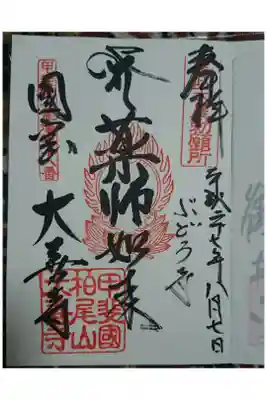 奉拝
勅願所
平成二十七年八月七日
ぶどう寺
薬師如来
國宝
大善寺
甲斐國
柏尾山
大善寺